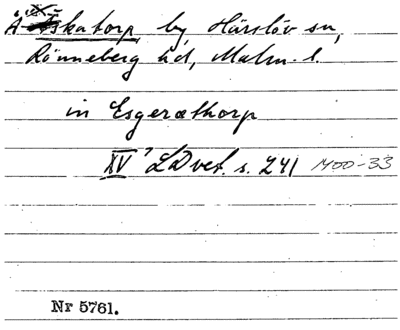 Äskatorp by Härslöv sn,
Rönneberg hd, Malm. l.
in Esgeræthorp
XV' LDvet. s. 241 1400-33
Nr 5761.